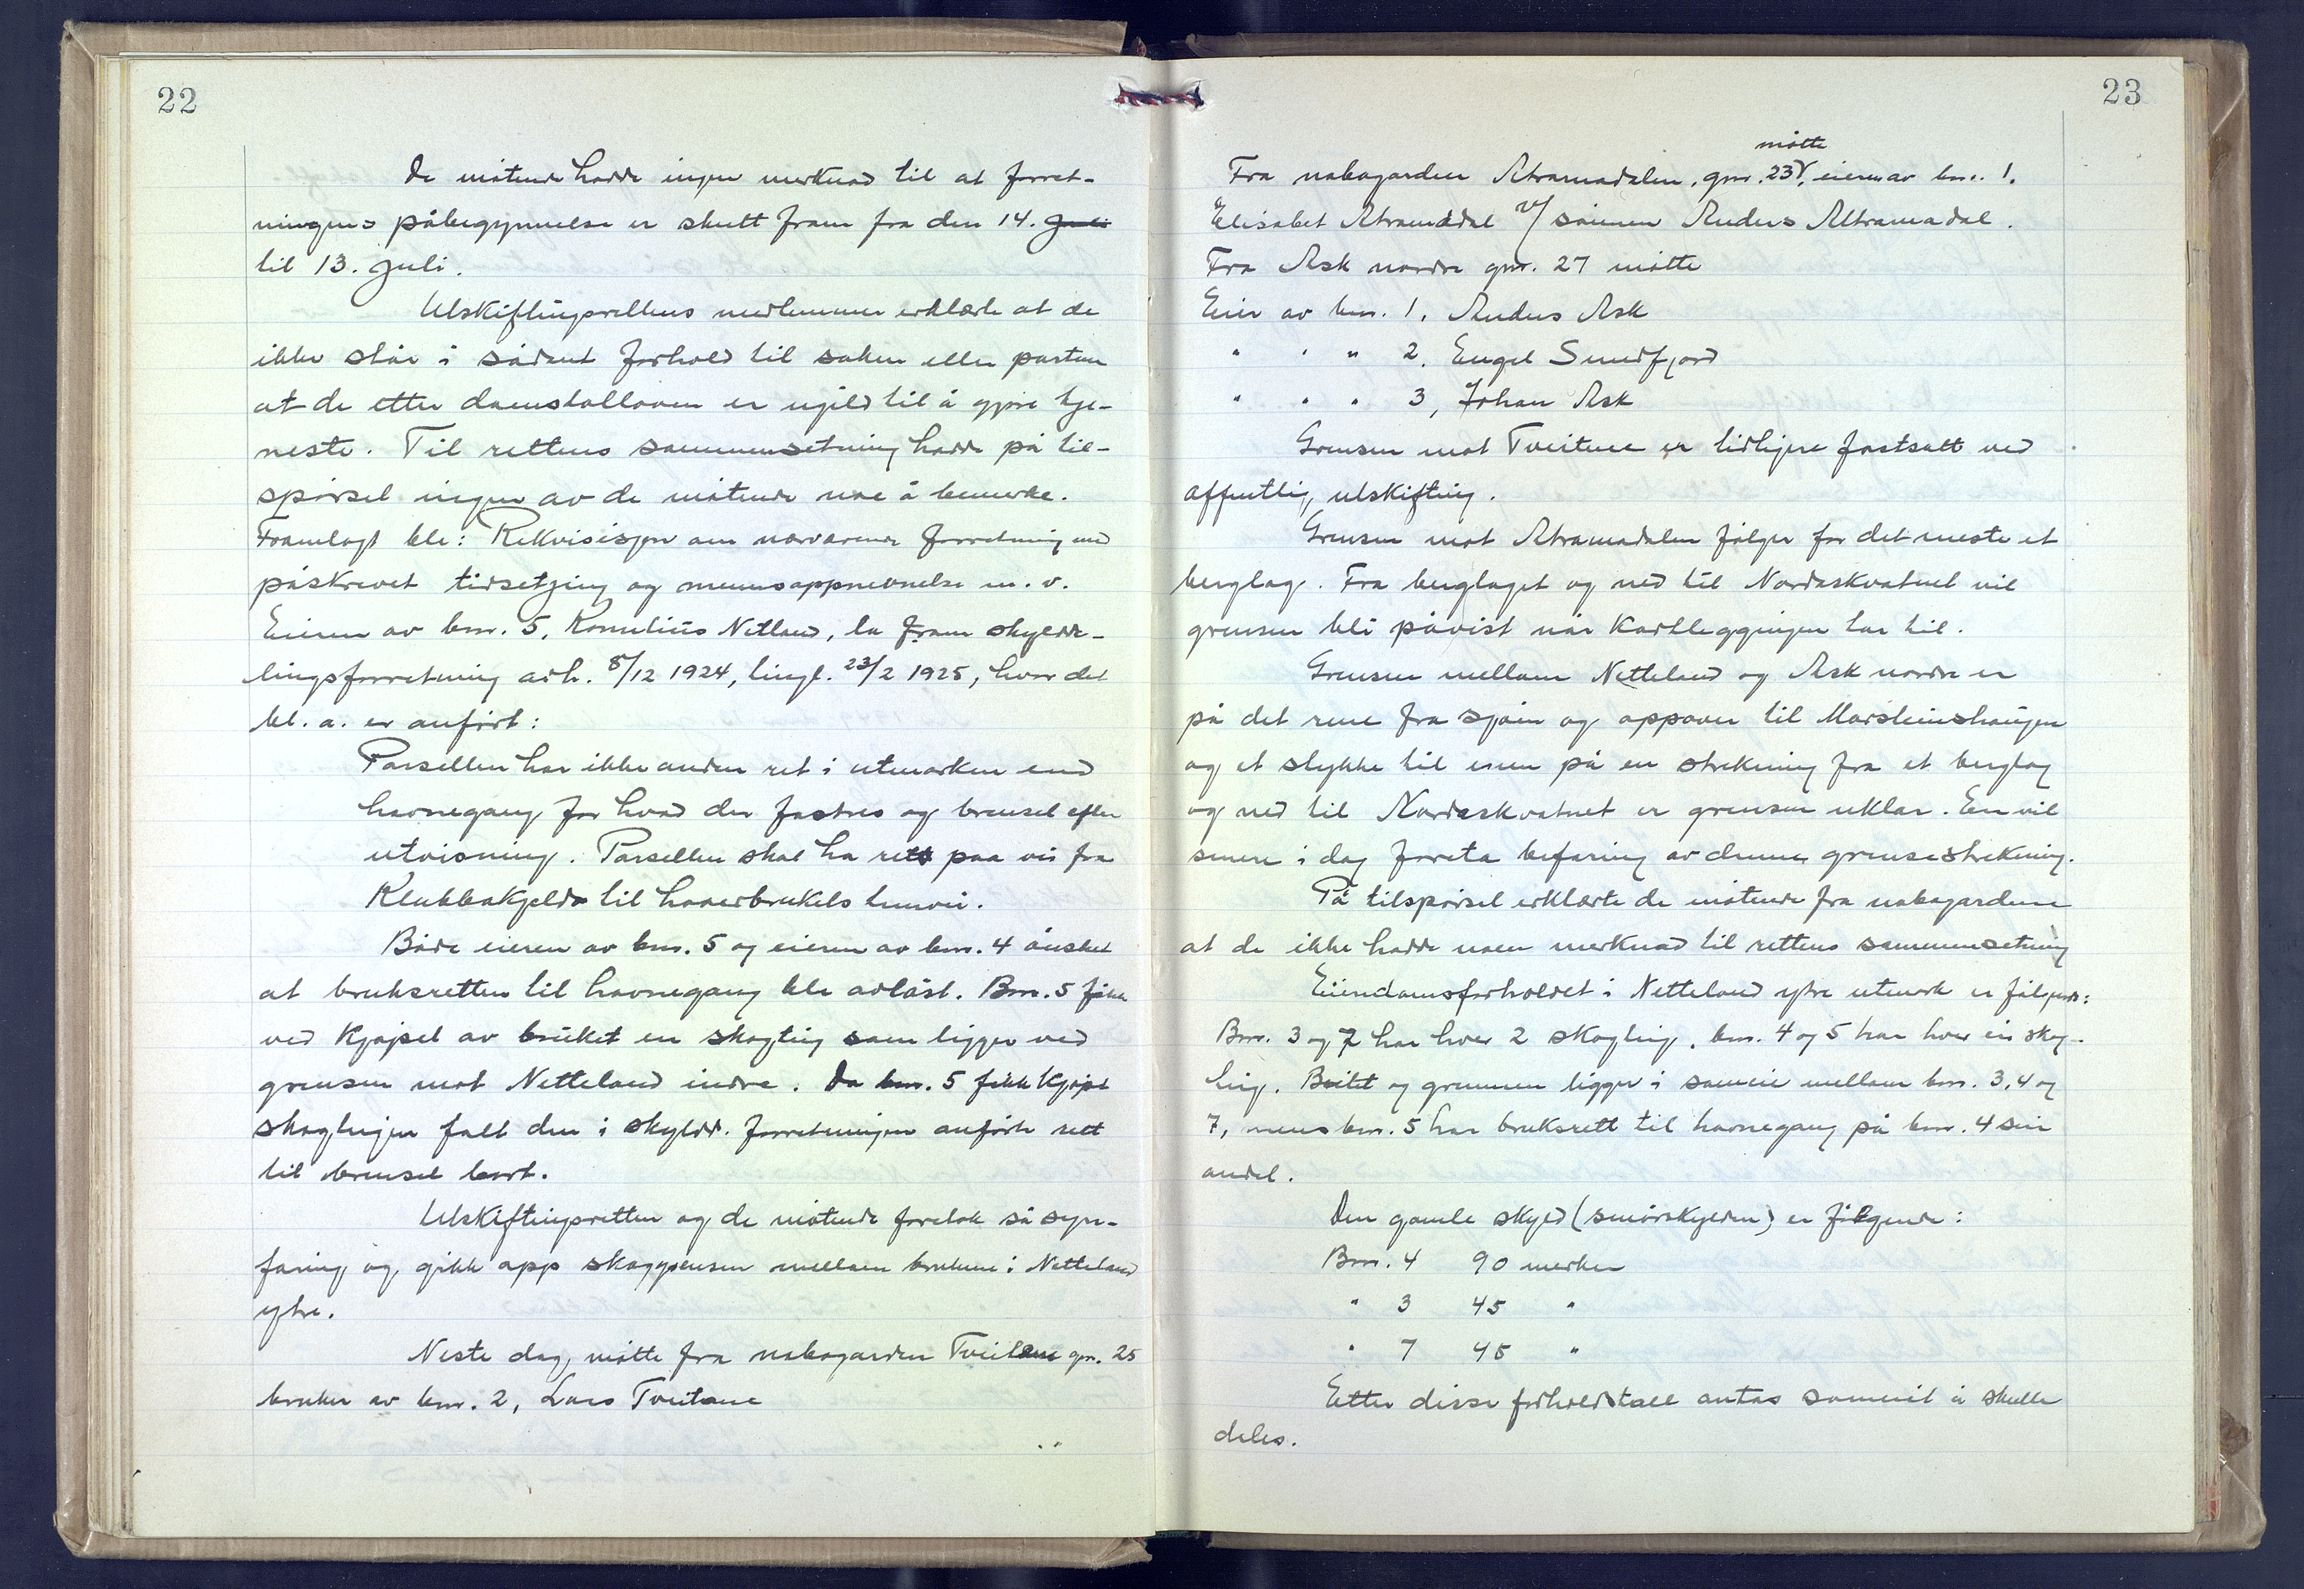 22
De møtende hadde ingen merknad til at forret-
ningens påbegynnelse er skutt fram fra den 14. Juli
til 13. Juli.
Utskiftingsrettens medlemmer erklærte at de
ikke står i sådant forhold til saken eller partene
at de etter domstolloven er ugild til å gjøre tje-
neste. Til rettens sammensetning hadde på til-
spørsel ingen av de møtende noe å bemerke.
Framlagt ble: Rekvisisjon om nærværende forretning med
påskrevet tidsetjing og mennsoppnevnelse m. v.
Eieren av bnr. 5, Kornelius Netland, la fram skyldde-
lingsforretning avh. 8/12 1924, tingl. 23/2 1925, hvor det
bl. a. er anført:
Parsellen har ikke anden ret i utmarken end
havnegang for hvad der fostres og brensel efter
utvisning. Parsellen skal ha rett paa vei fra
Klubbakjeldo til hoverbrukets tunvei.
Både eieren av bnr. 5 og eieren av bnr. 4 ønsket
at bruksretten til havnegang ble avløst. Bnr. 5 fikk
ved kjøpet av bruket en skogteig som ligger ved
grensen mot Netteland indre. Da bnr. 5 fikk kjøpt
skogteigen falt den i skyldd. forretningen anførte rett
til brensel bort.
Utskiftingsretten og de møtende foretok så syn-
faring og gikk opp skoggrensen mellom brukene i Netteland
ytre.
Neste dag, møtte fra nabogarden Tveitane gnr. 25
bruker av bnr. 2, Lars Tveitane
23
møtte
Fra nabogarden Atramadalen, gnr. 23, eieren av bnr. 1.
Elisabet Atramadal v/ sønnen Anders Altramadal.
Fra Ask nordre gnr. 27 møtte
Eier av bnr. 1, Anders Ask
" " " 2, Engel Sundfjord
" " " 3, Johan Ask
Grensen mot Tveitene er tidligere fastsatt ved
offentlig, utskifting.
Grensen mot Atramadalen følger for det meste et
berglag. Fra berglaget og ned til Nordaskvatnet vil
grensen bli påvist når kartleggingen tar til.
Grensen mellom Netteland og Ask nordre er
på det rene fra sjøen og oppover til Marsteinshaugen
og et stykke til men på en strekning fra et berglag
og ned til Nordaskvatnet er grensen uklar. En vil
senere i dag foreta befaring av denne grensestrekning.
På tilspørsel erklærte de møtende fra nabogardene
at de ikke hadde noen merknad til rettens sammensetning
Eiendomsforholdet i Netteland ytre utmark er følgende:
Bnr. 3 og 7 har hver 2 skogteig, bnr. 4 og 5 har hver ein skog-
teig. Beitet og grunnen ligger i sameie mellom bnr. 3, 4 og
7, mens bnr. 5 har bruksrett til havnegang på bnr. 4 sin
andel.
Den gamle skyld (smørskylden) er følgende:
Bnr. 4 90 merker
" 3 45 "
" 7 45 "
Etter disse forholdstall antas sameiet å skulle
deles.